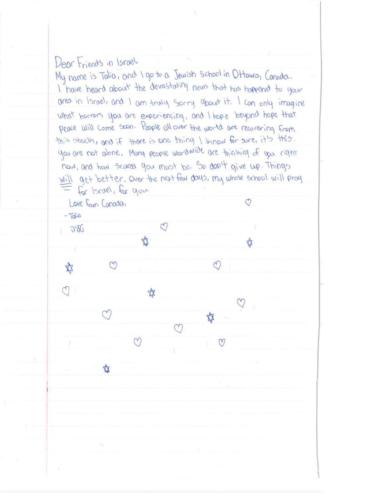 Dear Friends in Israel.
My name is Talia, and I go to a Jewish School in Ottawa, Canada.
I have heard about the devastating news that has happend to your
area in Israel, and I am truly sorry about it. I can only imagine
what horrors you are experiencing, and I hope beyond hope that
peace will come soon. People all over the world are recovering from
this attack, and if there is one thing I know for sure, it's this:
you are not alone. Many people worldwide are thinking of you right
now, and how scared you must be. So don't give up. Things
will get better. Over the next few days, my whole school will pray
for Israel, for you.
Love from Canada,
- Talia